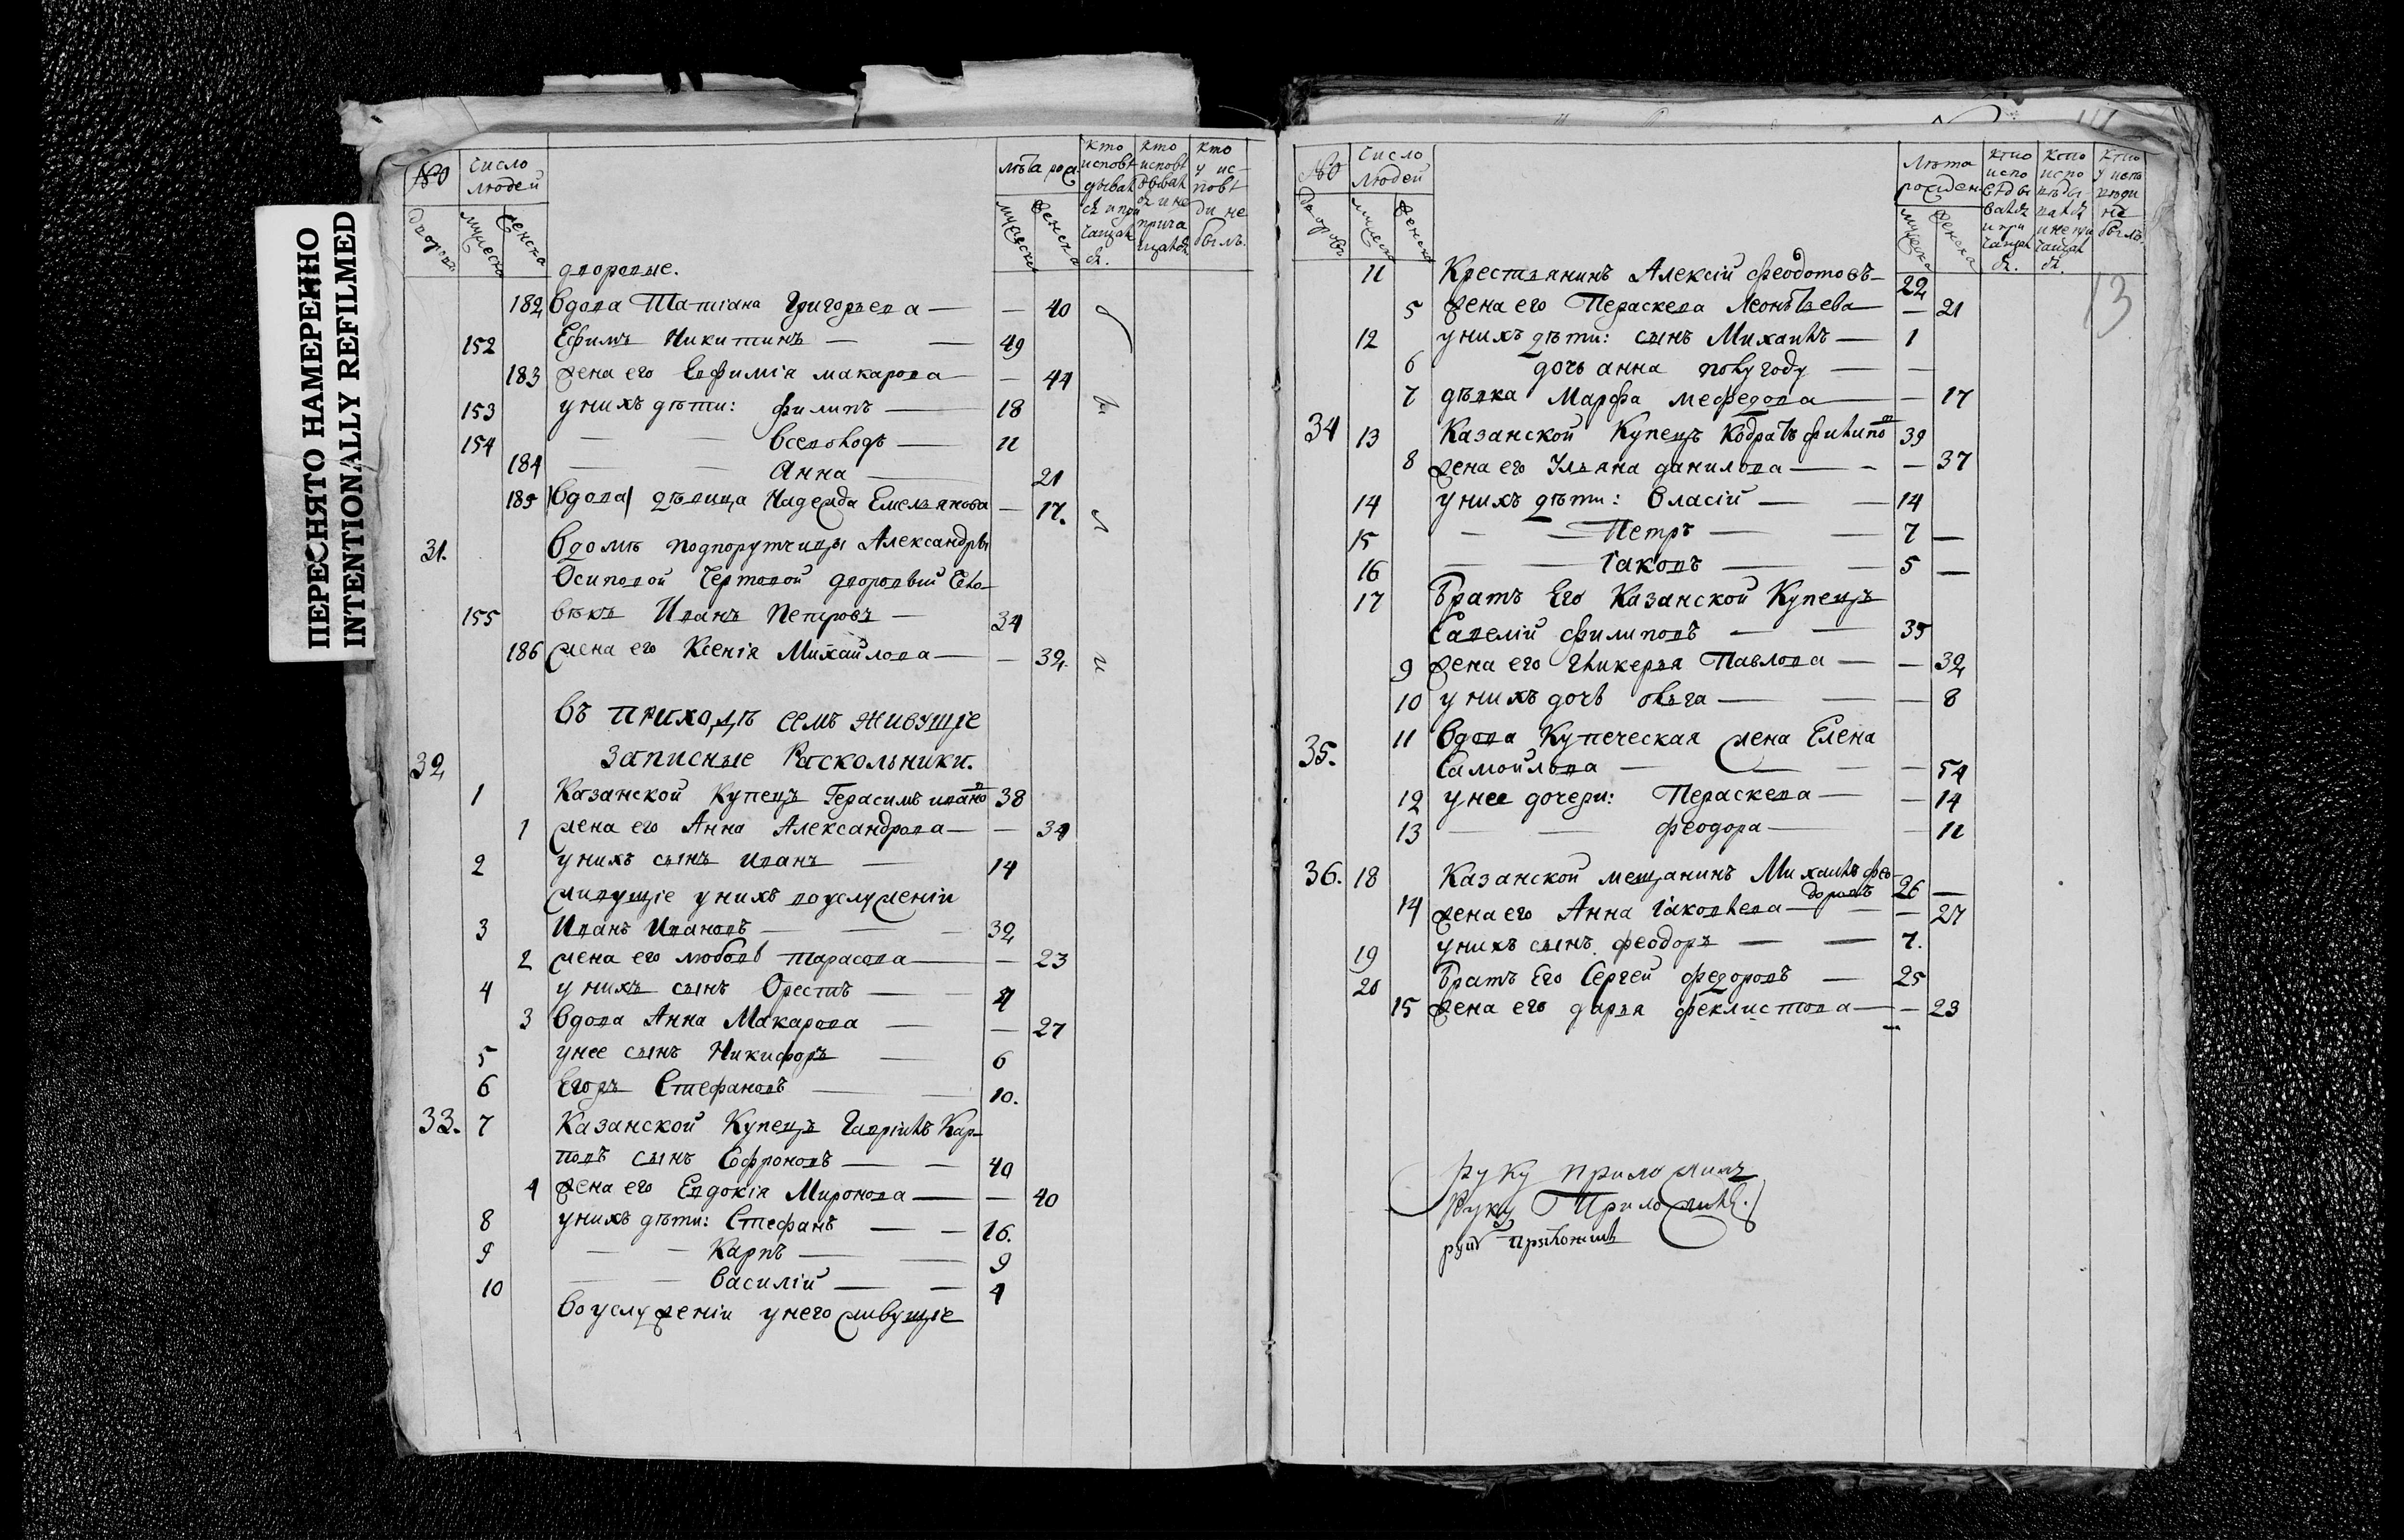 ПЕРЕСНЯТО НАМЕРЕННО
INTENTIONALLY REFILMED
№ Число людей лѣта рож. кто исповѣдывалъся и причащалъся. кто исповѣдывалъся и не причащалъся. кто у исповѣди не былъ.
дворовъ мужеска женска мужеска женска
дворовые.
182 вдова Татіана Григорьева — — 40
152 Ефимъ Никитинъ — — 49
183 жена его Евфимія макарова — — 44
153 у нихъ дѣти: филипъ — 18
154 — — Всеволодъ — 11
184 — — Анна — 21
185 вдова дѣвица Надежда Емельянова — 17.
31. Вдомѣ подпорутчицы Александры
Осиповой Чертовой дворовый Чело-
155 вѣкъ Иванъ Петровъ — 34
186 жена его Ксенія Михайлова — — 32
въ приходѣ семъ живущіе
записные Раскольники.
32
1 Казанской Купецъ Герасимъ ивановъ 38
1 жена его Анна Александрова — — 34
2 у нихъ сынъ Иванъ — 14
живущіе у нихъ во услуженіи
3 Иванъ Ивановъ — — — 32
2 жена его любовь тарасова — — 23
4 у нихъ сынъ Орестъ — — 4
3 вдова Анна Макарова — — 27
5 у нее сынъ Никифоръ — 6
6 Егоръ Стефановъ — — 10.
33. 7 Казанской Купецъ Гавріилъ Кар-
повъ сынъ Софроновъ — — 40
4 жена его Евдокія Миронова — — 40
8 у нихъ дѣти: Стефанъ — — 16.
9 — — Карпъ — — 9
10 — — Василій — — 4
во услуженіи у него живущіе
№ Число людей Лѣта рожден. кто исповѣдывалъся и причащалъся. кто исповѣдывалъся и не причащалъся. кто у исповѣди не былъ.
дворовъ мужеска женска мужеска женска
13
11 Крестьянинъ Алексій феодотовъ — 22
5 жена его Пераскева Леонтьева — — 21
12 у нихъ дѣти: сынъ Михаилъ — 1
6 дочь анна полугоду — —
7 дѣвка Марфа мефедова — — 17
34 13 Казанской Купецъ Кодратъ филиповъ 39
8 жена его Ульяна данилова — - — 37
14 у нихъ дѣти: Власій — — 14
15 - — Петръ — — 7 —
16 — — Іаковъ — — 5 —
17 Братъ Его Казанской Купецъ
Савелій филиповъ — — 35
9 жена его Гликерья Павлова — — 32
10 у нихъ дочь ольга — — — 8
35. 11 Вдова Купеческая жена Елена
Самойлова — — — — 54
12 у нее дочери: Пераскева — — 14
13 — — феодора — — 11
36. 18 Казанской мещанинъ Михаилъ фео-
доровъ 26 —
14 жена его Анна Іаковлева — — — 27
19 у нихъ сынъ феодоръ — — 7.
20 Братъ Его Сергей федоровъ — 25
15 жена его дарья феклистова — — 23
руку приложилъ
Руку Приложилъ.
руку приложилъ